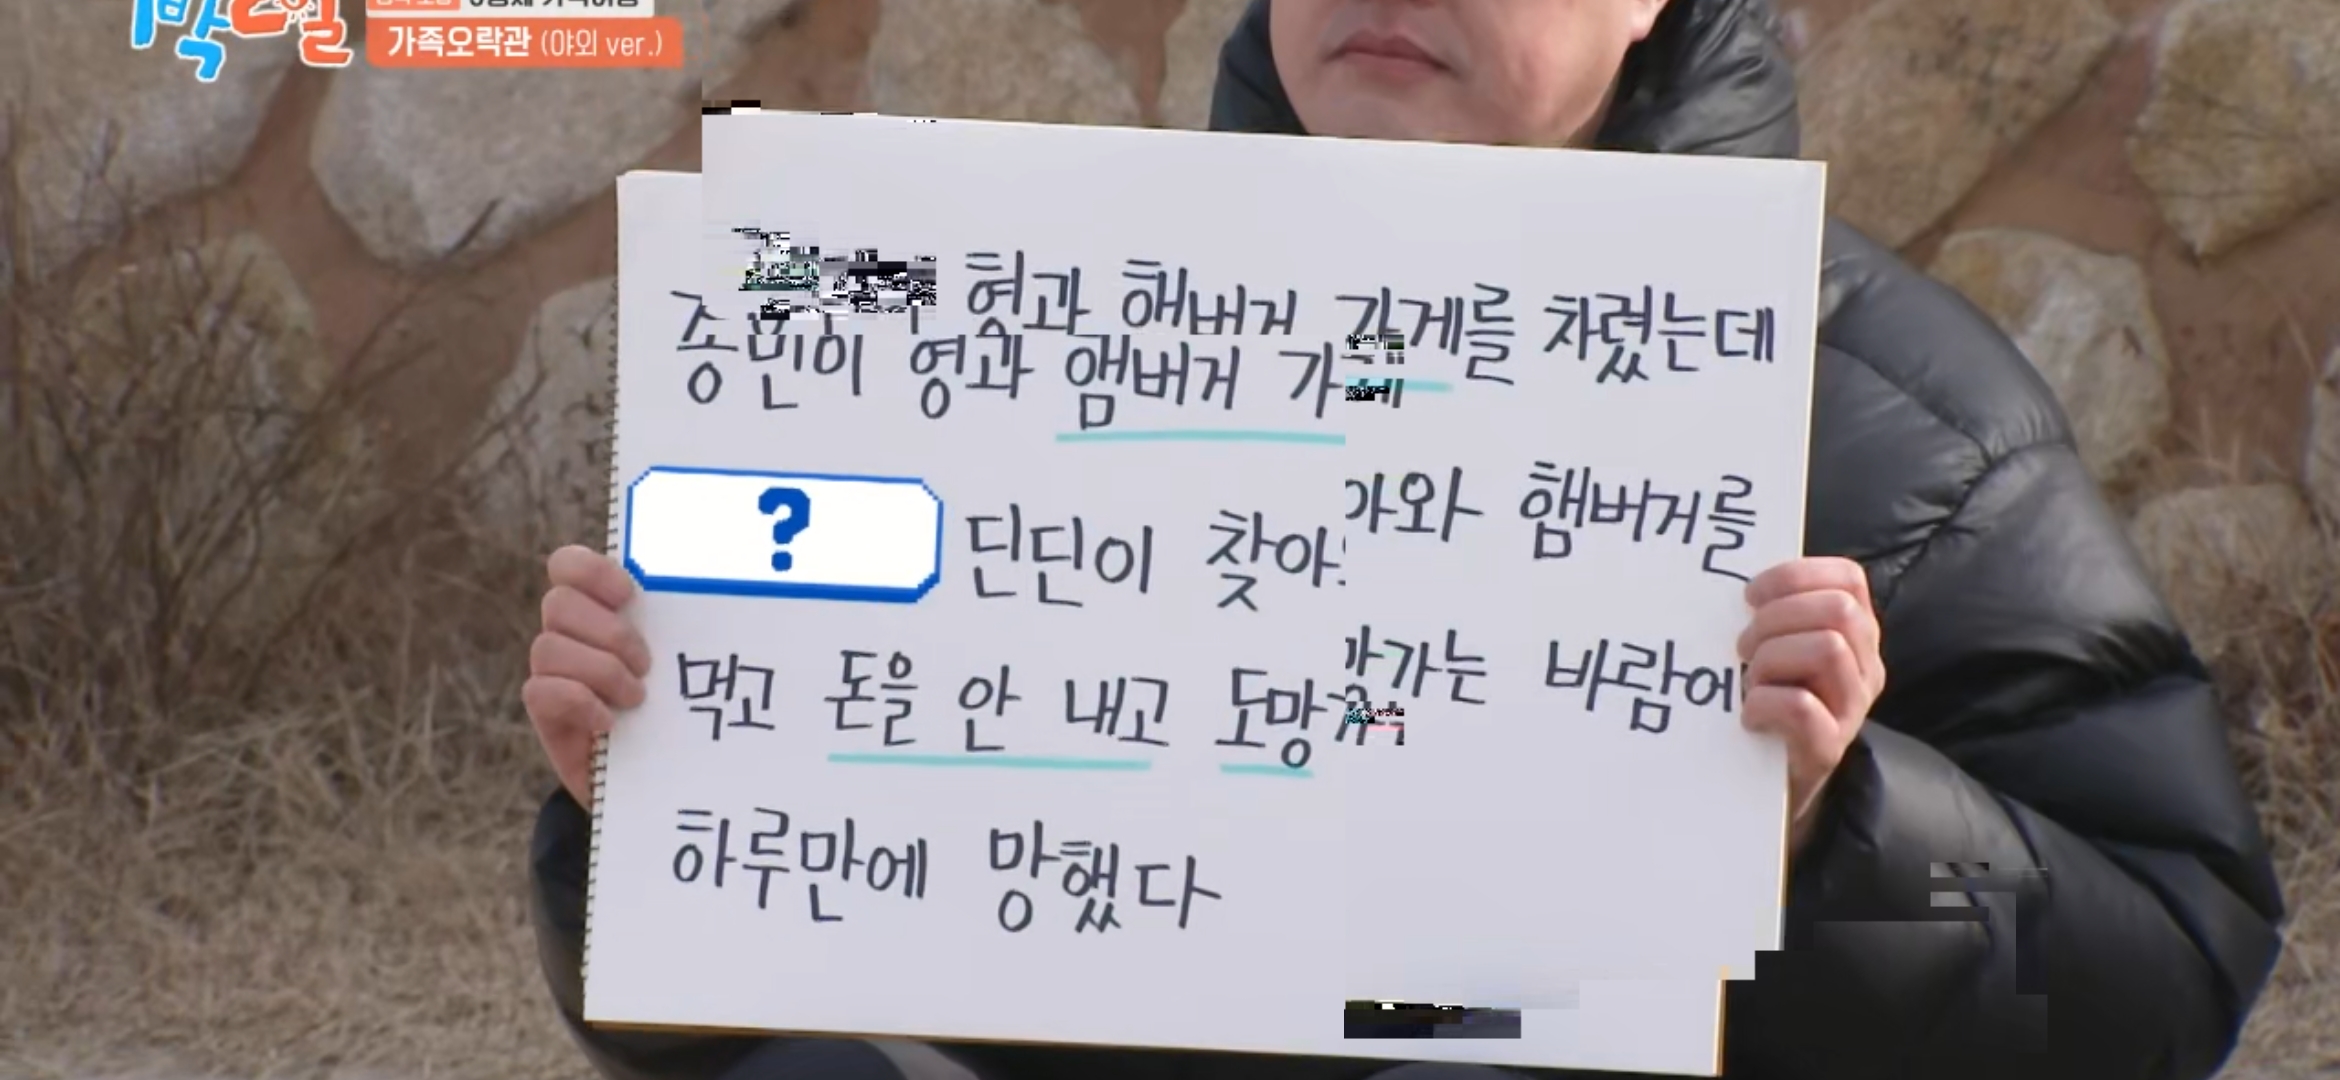 1박2일
가족오락관 (야외 ver.)
종민이 형과 햄버거 가게를 차렸는데
? 딘딘이 찾아와 햄버거를
먹고 돈을 안 내고 도망가는 바람에
하루만에 망했다